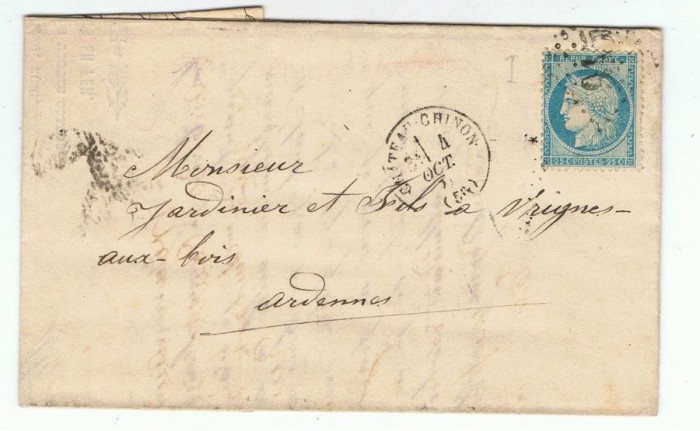 I
REPUB FRANC
25 C POSTES 25 C
CHÂTEAU-CHINON
4
OCT.
(58)
Monsieur
Jardinier et Fils a Vrignes-
aux-bois
ardennes